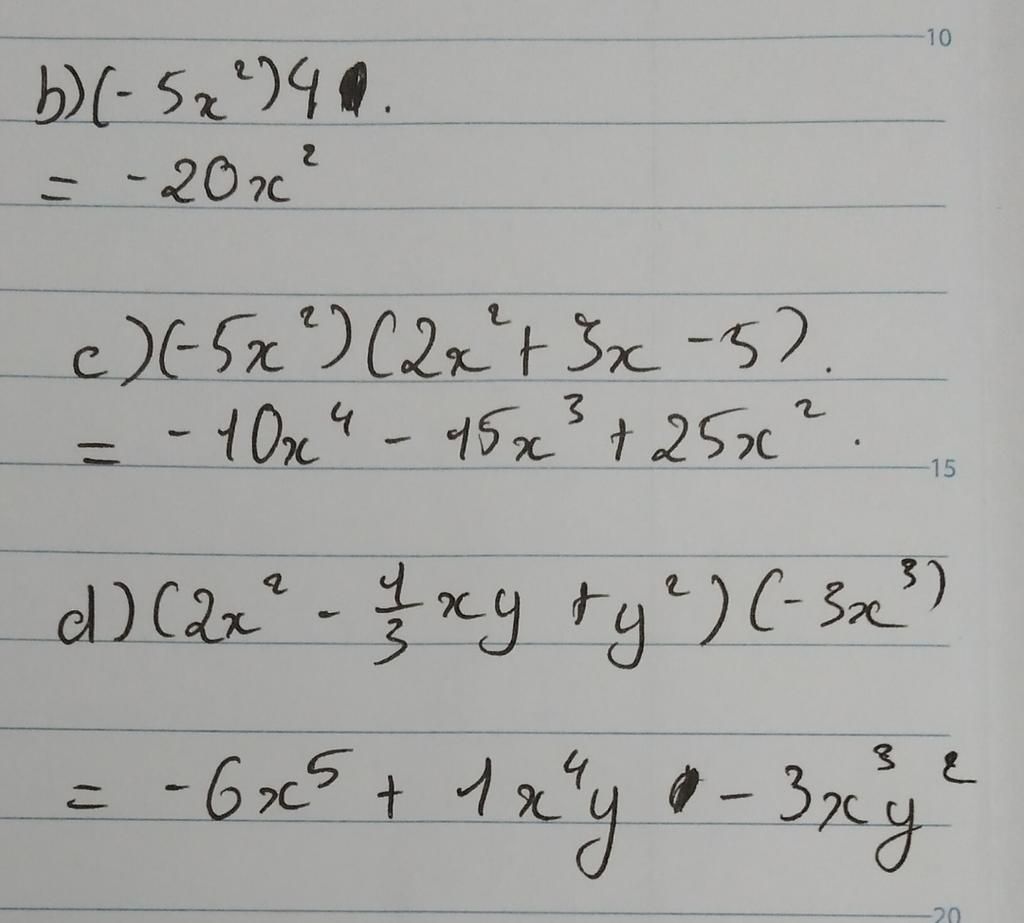 10
b)(-5x²)4.
= -20x²
c)(-5x²)(2x²+3x-5).
= -10x⁴ - 15x³ + 25x².
15
d)(2x² - 1/3 xy + y²)(-3x³)
= -6x⁵ + 1x⁴y - 3x³y²
20